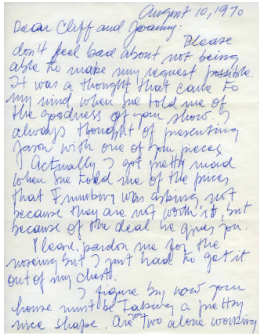 August 10, 1970
Dear Cliff and Joanny:
Please
don't feel bad about not being
able to make my request possible.
It was a thought that came to
my mind when she told me of
the goodness of your show. I
always thought of presenting
Jason with one of your pieces
Actually I got pretty mad
when she told me of the prices
that was asking not
because they are not worth it, but
because of the deal he gives you.
Please pardon me for the
nosering but I just had to get it
out of my chest.
I figure by now your
house must be takeing a pretty
nice shape. Are two alone working